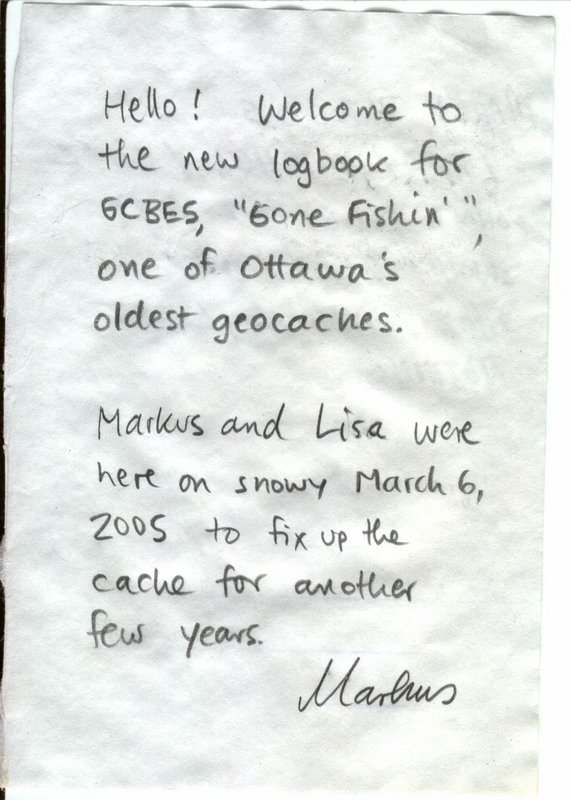 Hello! Welcome to
the new logbook for
GCBE5, "Gone Fishin'",
one of Ottawa's
oldest geocaches.
Markus and Lisa were
here on snowy March 6,
2005 to fix up the
cache for another
few years.
Markus